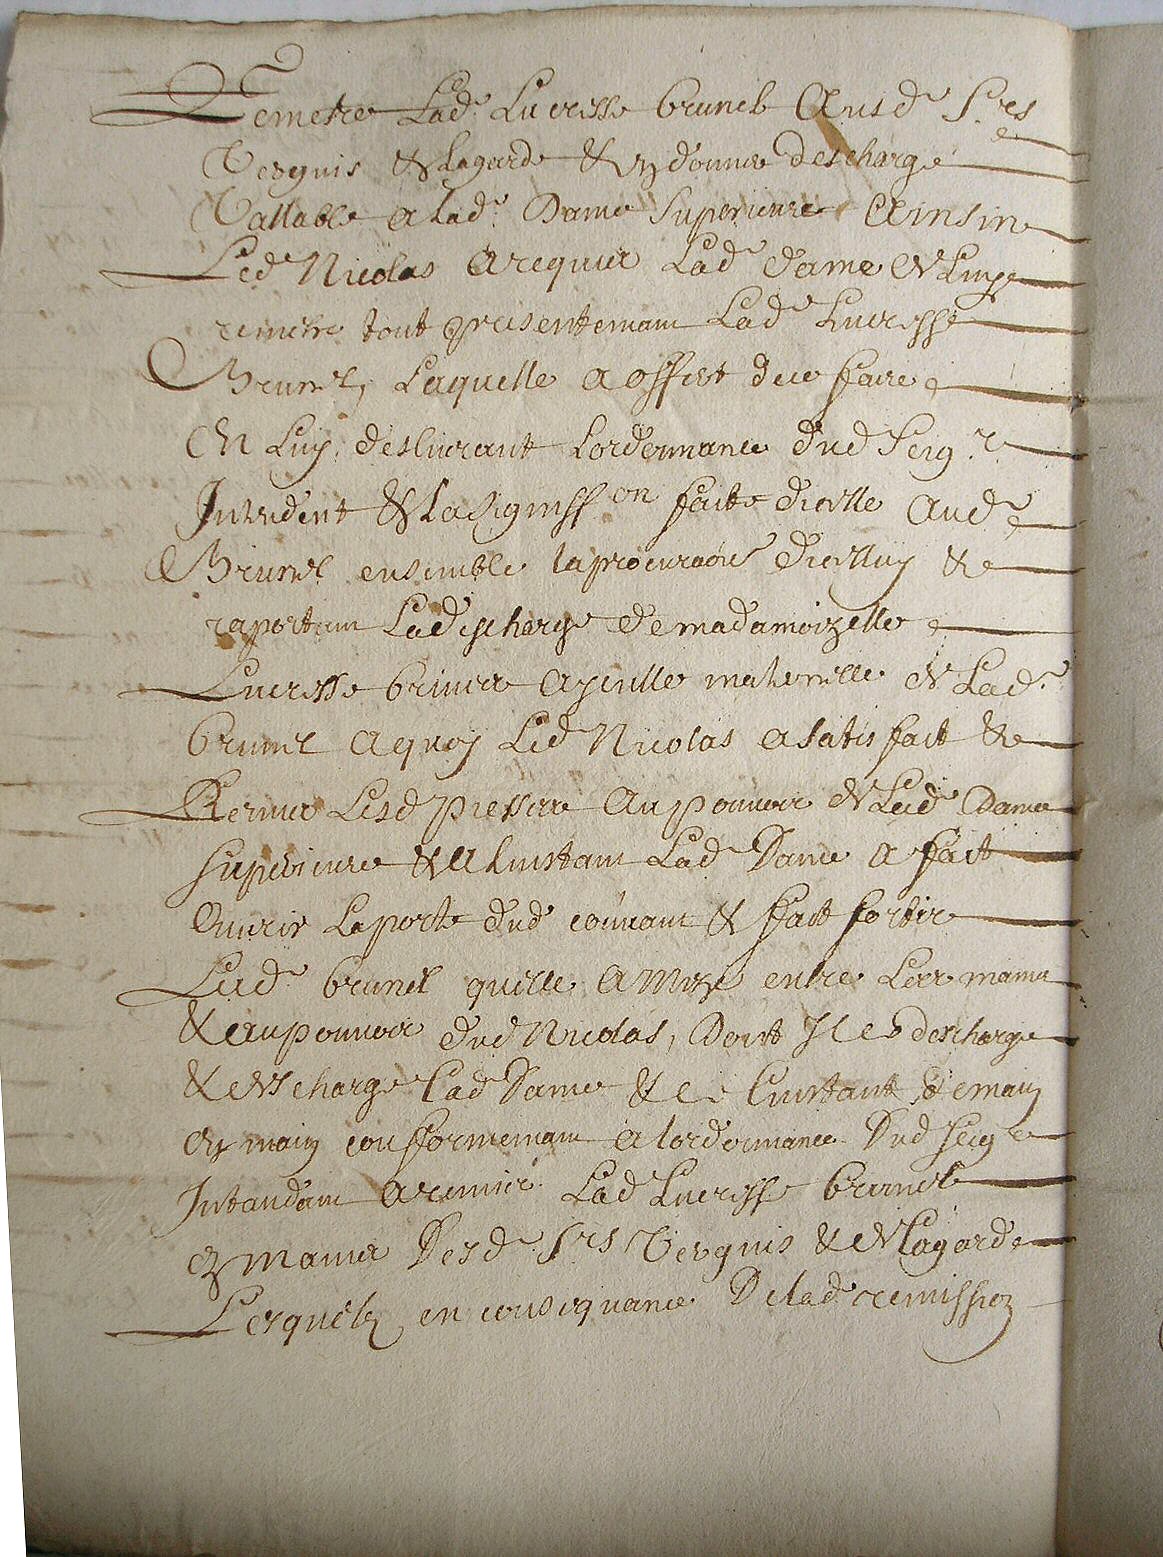 Remetre Lad.e Lucresse brunel Ausd.s S.res
Verguis & Lagarde & en donner descharge
Vallable a lad.e Dame Superieure Ainsin
Led Nicolas A requis Lad.e dame de Luy
remetre tout presentemam Lad.e Lucresse
Brunel, Laquelle a offert de ce faire
En Luy deslivrant Lordonnance dud Seig.r
Intendent & La signiff.on faite dicelle Aud.
Brunel ensemble la procura͠on dicelluy &
raportam La descharge de madamoizelle
Lucresse Ayeulle maternelle de Lad.e
brunel a quoy Led Nicolas a satisfait &
Remis Lesd pieces Au pouvoir de Lad.e Dame
Superieure & a Linstam Lad.e Dame a fait
Ouvrir La porte dud couvant & fait sortir
Lad.e brunel quelle A Mize entre Les mains
& au pouvoir dud Nicolas, Dont Il en descharge
& descharge Lad Dame & a Linstant de main
En main conformemam a lordonnance Dud Seig.r
Intandam A remis Lad Lucresse brunel
Ez mains Desd. S.rs Verguis & de Lagarde
Lesquels en consequance De lad.e remission